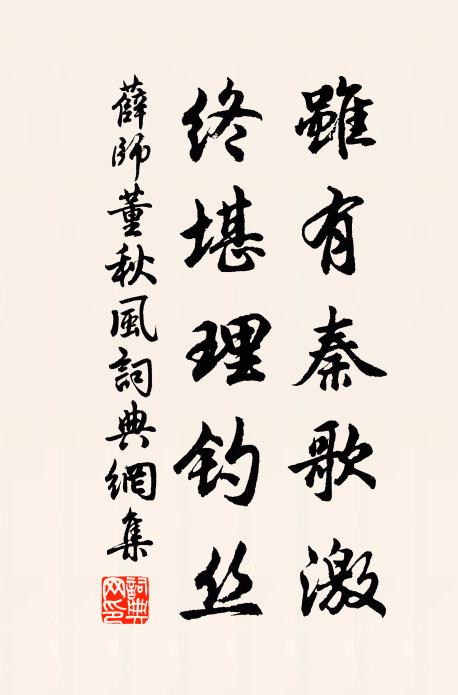 雖有秦歌激
終堪理釣丝
薛師董秋風詞典網集
詞典
网印